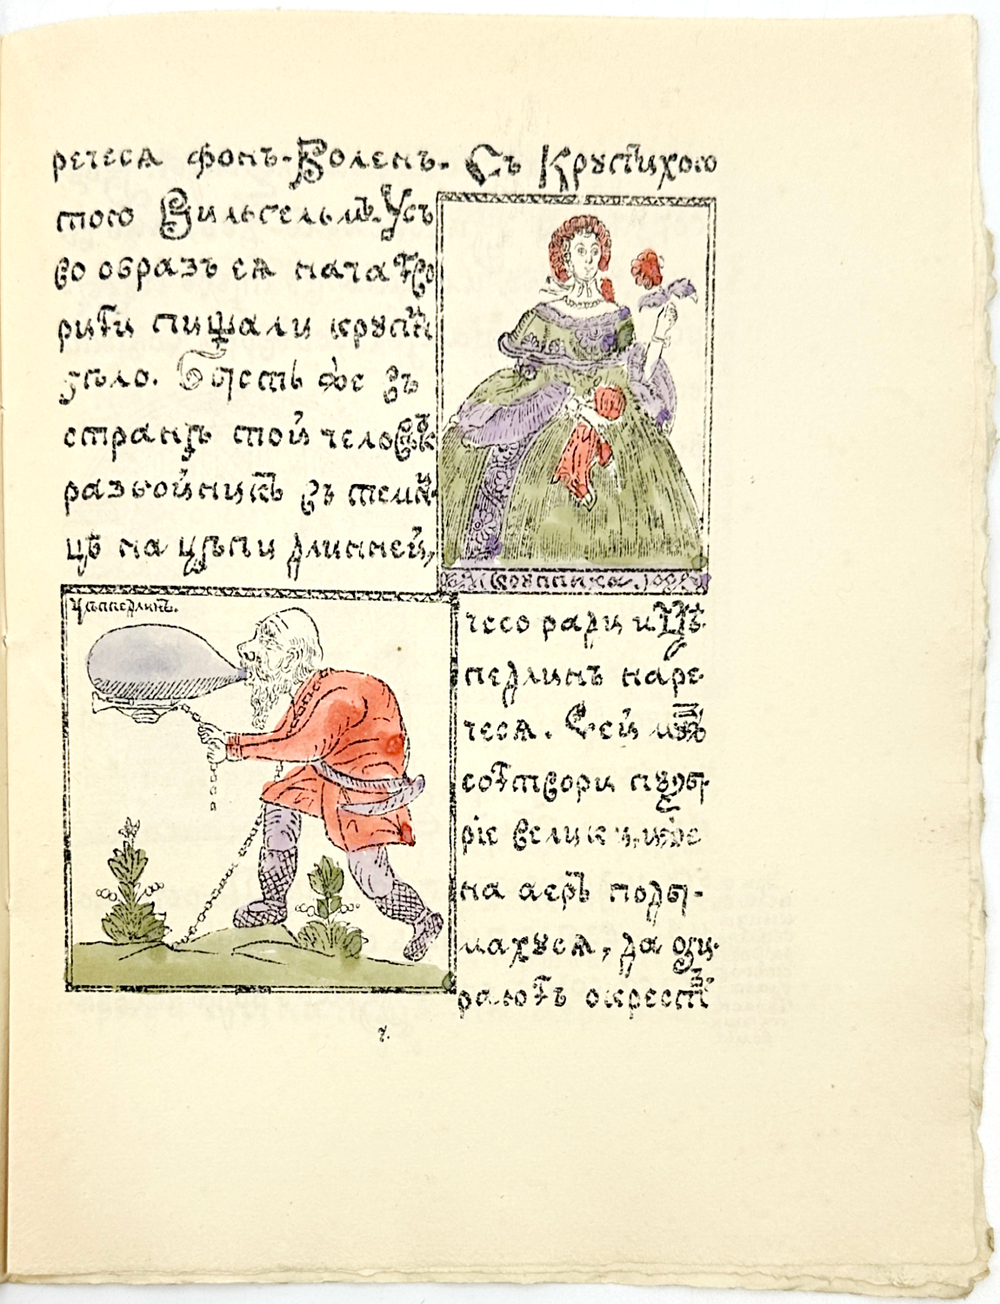 речеся фонъ-Боленъ. Съ Круппихою
тою Вильгельмъ Усъ
во образъ ея нача тво
рити пищали крупны
зѣло. Бѣ есть же въ
странѣ той человѣкъ
разбойникъ въ темни
цѣ на цѣпи длинней,
Цѣппелинъ.
чесо ради и Цѣ
пелинъ наре
чеся. Сей мѣ
сотвори пузы
рие велик
на аеръ поды-
махуся, да ози
раютъ окрест